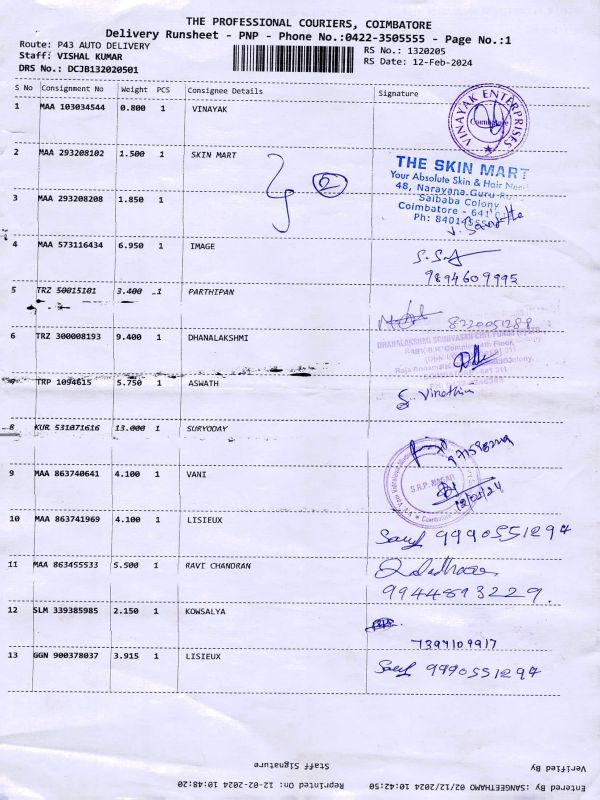 THE PROFESSIONAL COURIERS, COIMBATORE
Delivery Runsheet - PNP - Phone No.:0422-3505555 - Page No.:1
Route: P43 AUTO DELIVERY RS No.: 1320205
Staff: VISHAL KUMAR RS Date: 12-Feb-2024
DRS No.: DCJB132020501
S No Consignment No Weight PCS Consignee Details Signature
1 MAA 103034544 0.800 1 VINAYAK
VINAYAK ENTERPRISES
Coimbatore
2 MAA 293208102 1.500 1 SKIN MART
2
THE SKIN MART
Your Absolute Skin & Hair
48, Narayana Guru
Saibaba Colony
Coimbatore - 641
3 MAA 293208208 1.850 1
Ph:
4 MAA 573116434 6.950 1 IMAGE
9894609995
5 TRZ 50015101 3.400 1 PARTHIPAN
8220051288
6 TRZ 300008193 9.400 1 DHANALAKSHMI
DHANALAKSHMI SRINIVASAN CHIT FUNDS
7 TRP 1094615 5.750 1 ASWATH
8 KUR 531071616 13.000 1 SURYODAY
9 MAA 863740641 4.100 1 VANI
S.R.P. NAGAR
12/02/24
10 MAA 863741969 4.100 1 LISIEUX
9990551297
11 MAA 863455533 5.500 1 RAVI CHANDRAN
9944813229.
12 SLM 339385985 2.150 1 KOWSALYA
7397109917
13 GGN 900378037 3.915 1 LISIEUX
9990551297
Staff Signature
Verified By
Reprinted On: 12-02-2024 10:48:20
Entered By: SANGEETHAMO 02/12/2024 10:42:50